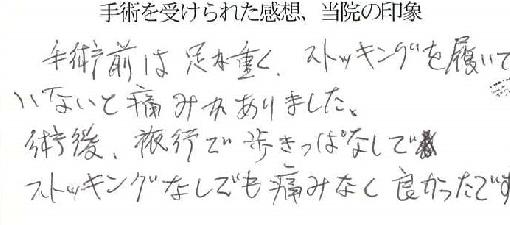 手術を受けられた感想、当院の印象
手術前は足が重く、ストッキングを履いて
いないと痛みがありました。
術後、旅行で歩きっぱなしで
ストッキングなしでも痛みなく良かったです